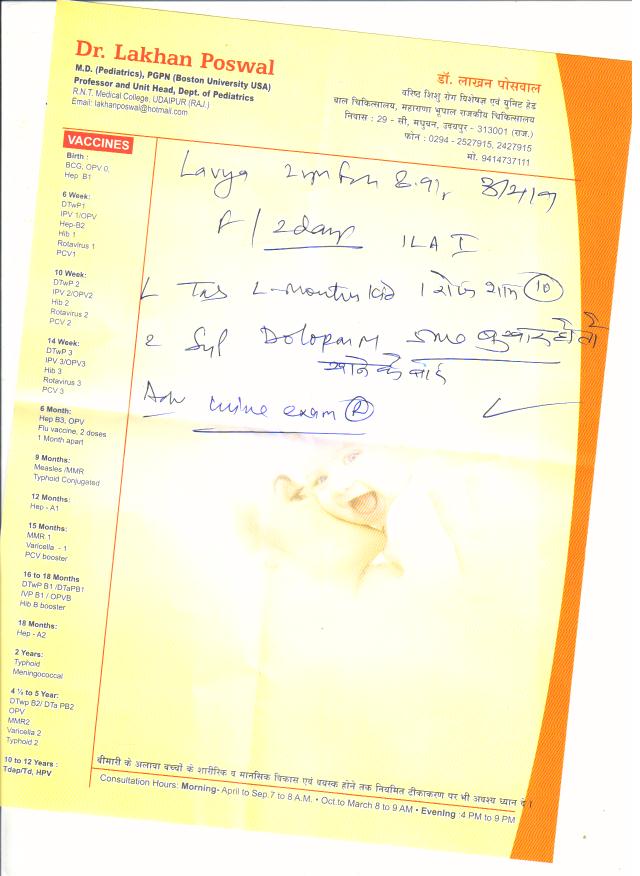 Dr. Lakhan Poswal
M.D. (Pediatrics), PGPN (Boston University USA)
Professor and Unit Head, Dept. of Pediatrics
R.N.T. Medical College, UDAIPUR (RAJ.)
Email: lakhanposwal@hotmail.com
डॉ. लाखन पोसवाल
वरिष्ठ शिशु रोग विशेषज्ञ एवं युनिट हेड
बाल चिकित्सालय, महाराणा भूपाल राजकीय चिकित्सालय
निवास : 29 - सी, मधुवन, उदयपुर - 313001 (राज.)
फोन : 0294 - 2527915, 2427915
मो. 9414737111
VACCINES
Birth :
BCG, OPV 0,
Hep B1
6 Week:
DTwP1
IPV 1/OPV
Hep-B2
Hib 1
Rotavirus 1
PCV1
10 Week:
DTwP 2
IPV 2/OPV2
Hib 2
Rotavirus 2
PCV 2
14 Week:
DTwP 3
IPV 3/OPV3
Hib 3
Rotavirus 3
PCV 3
6 Month:
Hep B3, OPV
Flu vaccine, 2 doses
1 Month apart
9 Months:
Measles /MMR
Typhoid Conjugated
12 Months:
Hep - A1
15 Months:
MMR 1
Varicella - 1
PCV booster
16 to 18 Months
DTwP B1 /DTaPB1
IVP B1 / OPVB
Hib B booster
18 Months:
Hep - A2
2 Years:
Typhoid
Meningococcal
4 ½ to 5 Year:
DTwp B2/ DTa PB2
OPV
MMR2
Varicella 2
Typhoid 2
10 to 12 Years :
Tdap/Td, HPV
Lavya
F / 2 days
Tab L-Montus kid 1 रोज शाम (10)
2 Syp Dolopar M 5ml बुखार हो तो
खाने के बाद
Adv urine exam (R)
बीमारी के अलावा बच्चों के शारीरिक व मानसिक विकास एवं वयस्क होने तक नियमित टीकाकरण पर भी अवश्य ध्यान दें।
Consultation Hours: Morning- April to Sep.7 to 8 A.M. • Oct.to March 8 to 9 AM • Evening :4 PM to 9 PM